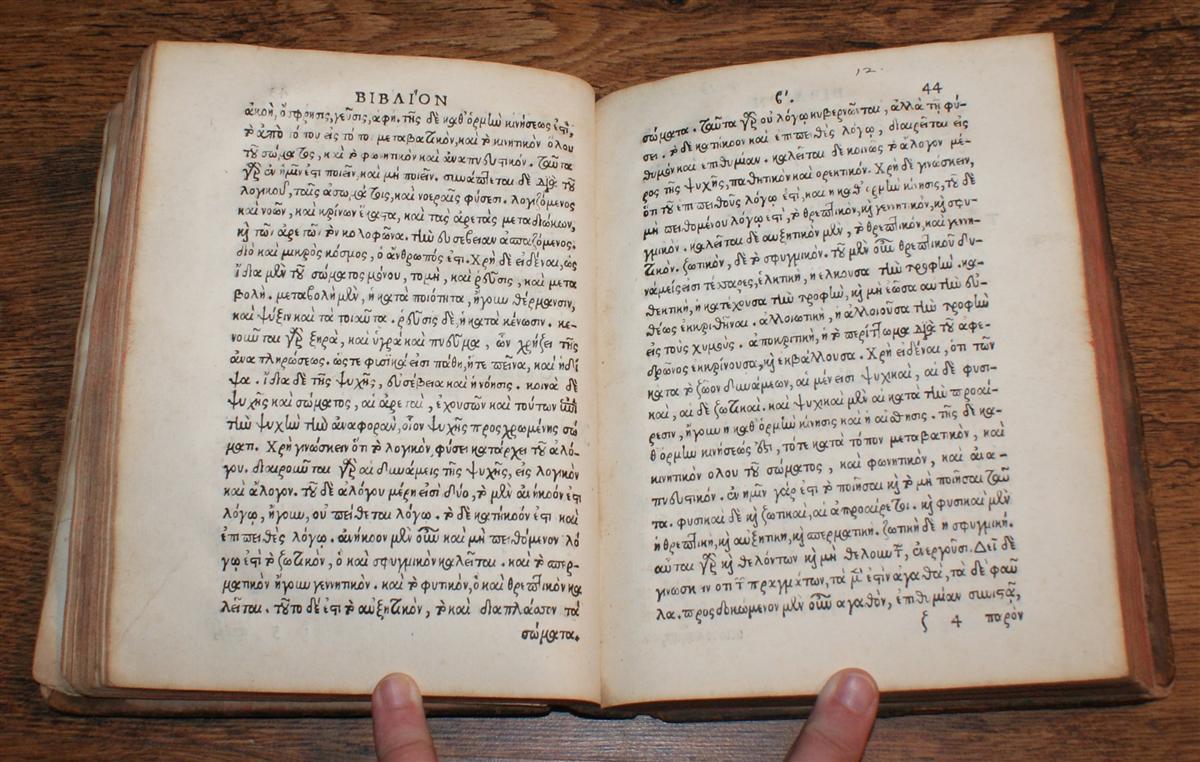 ΒΙΒΛΙ´ΟΝ
ἀκοὴ, ὄσφρησις, γεῦσις, ἁφή. τῆς δὲ καθ᾽ ὁρμὴν κινήσεως ἐςὶ,
τὸ ἀπὸ τόπου εἰς τόπον μεταβατικὸν, καὶ τὸ κινητικὸν ὅλου
τοῦ σώματος, καὶ τὸ φωνητικὸν καὶ ἀναπνευςικόν. ταῦτα
γὰρ ἐν ἡμῖν ἐςὶ ποιεῖν, καὶ μὴ ποιεῖν. συνάπτεται δὲ διὰ τοῦ
λογικοῦ, ταῖς ἀσωμάτοις, καὶ νοεραῖς φύσεσι. λογιζόμενος
καὶ νοῶν, καὶ κρίνων ἕκαςα, καὶ τὰς ἀρετὰς μεταδιώκων,
καὶ τῶν ἀρετῶν τὸν κολοφῶνα. τὴν εὐσέβειαν ἀσπαζόμενος.
διὸ καὶ μικρὸς κόσμος, ὁ ἄνθρωπός ἐςι. Χρὴ δὲ εἰδέναι, ὡς
ἴδια μὲν τοῦ σώματος μόνου, τομὴ, καὶ ῥεῦσις, καὶ μετα
βολή. μεταβολὴ μὲν, ἡ κατὰ ποιότητα, ἤγουν θέρμανσιν,
καὶ ψύξιν καὶ τὰ τοιαῦτα. ῥεῦσις δὲ, ἡ κατὰ κένωσιν. κε-
νοῦται γὰρ ξηρὰ, καὶ ὑγρὰ καὶ πνεῦμα, ὧν χρῄζει τῆς
ἀναπληρώσεως. ὥςτε φυσικά εἰσι πάθη, ἥτε πεῖνα, καὶ ἡ δί
ψα. ἴδια δὲ τῆς ψυχῆς, εὐσέβεια καὶ ἡ νόησις. κοινὰ δὲ
ψυχῆς καὶ σώματος, αἱ ἀρεταὶ, ἐχουσῶν καὶ τούτων ἐπὶ
τὴν ψυχὴν τὴν ἀναφορὰν, οἷον ψυχῆς προςχρωμένης σώ
ματι. Χρὴ γινώσκειν ὅτι τὸ λογικὸν φύσει κατάρχει τοῦ ἀλό-
γου. διαιροῦνται γὰρ αἱ δυνάμεις τῆς ψυχῆς, εἰς λογικὸν
καὶ ἄλογον. τοῦ δὲ ἀλόγου μέρη εἰσὶ δύο, τὸ μὲν ἀνήκοόν ἐςι
λόγῳ, ἤγουν, οὐ πείθεται λόγῳ. τὸ δὲ κατήκοόν ἐςι καὶ
ἐπιπειθὲς λόγῳ. ἀνήκοον μὲν οὖν καὶ μὴ πειθόμενον λό
γῳ ἐςὶ τὸ ζωτικὸν, ὃ καὶ σφυγμικὸν καλεῖται. καὶ τὸ σπερ-
ματικὸν ἤγουν γεννητικόν. καὶ τὸ φυτικὸν, ὃ καὶ θρεπτικὸν κα
λεῖται. τούτο δὲ ἐςὶ τὸ αὐξητικὸν, τὸ καὶ διαπλάσσον τὰ
σώματα.
12.
ϐ΄. 44
σώματα. ταῦτα γὰρ οὐ λόγῳ κυβερνῶνται, ἀλλὰ τῇ φύ-
σει. τὸ δὲ κατήκοον καὶ ἐπιπειθὲς λόγῳ, διαιρεῖται εἰς
θυμὸν καὶ ἐπιθυμίαν. καλεῖται δὲ κοινῶς τὸ ἄλογον μέ-
ρος τῆς ψυχῆς, παθητικὸν καὶ ὀρεκτικόν. Χρὴ δὲ γινώσκειν,
ὅτι τοῦ ἐπιπειθοῦς λόγῳ ἐςὶ, καὶ ἡ καθ᾽ ὁρμὴν κίνησις, τοῦ δὲ
μὴ πειθομένου λόγῳ ἐςὶ, τὸ θρεπτικὸν, καὶ γεννητικὸν, καὶ σφυ-
γμικόν. καλεῖται δὲ αὐξητικὸν μὲν, τὸ θρεπτικὸν, καὶ γεννη-
τικόν. ζωτικὸν, δὲ τὸ σφυγμικόν. τοῦ μὲν οὖν θρεπτικοῦ δυ-
νάμεις εἰσὶ τέσσαρες, ἑλκτικὴ, ἡ ἕλκουσα τὴν τροφήν. κα-
θεκτικὴ, ἡ κατέχουσα τὴν τροφὴν, καὶ μὴ ἐῶσα αὐτὴν εὐ-
θέως ἐκκριθῆναι. ἀλλοιωτικὴ, ἡ ἀλλοιοῦσα τὴν τροφὴν
εἰς τοὺς χυμούς. ἀποκριτικὴ, ἡ τὸ περίττωμα διὰ τοῦ ἀφε-
δρῶνος ἐκκρίνουσα, καὶ ἐκβάλλουσα. Χρὴ εἰδέναι, ὅτι τῶν
κατὰ τὸ ζῶον δυνάμεων, αἱ μέν εἰσι ψυχικαὶ, αἱ δὲ φυσι-
καὶ, αἱ δὲ ζωτικαί. καὶ ψυχικαὶ μὲν αἱ κατὰ τὴν προαί-
ρεσιν, ἤγουν ἡ καθ᾽ ὁρμὴν κίνησις καὶ ἡ αἴσθησις. τῆς δὲ κα-
θ᾽ ὁρμὴν κινήσεώς ἐςι, τότε κατὰ τόπον μεταβατικὸν, καὶ
κινητικὸν ὅλου τοῦ σώματος, καὶ φωνητικὸν, καὶ ἀνα-
πνευςικόν. ἐν ἡμῖν γάρ ἐςι τὸ ποιῆσαι καὶ τὸ μὴ ποιῆσαι ταῦ
τα. φυσικαὶ δὲ καὶ ζωτικαὶ, αἱ ἀπροαίρετοι. καὶ φυσικαὶ μὲν
ἡ θρεπτικὴ, καὶ αὐξητικὴ, καὶ σπερματική. ζωτικὴ δὲ ἡ σφυγμική.
αὗται γὰρ καὶ θελόντων καὶ μὴ θελόντων, ἐνεργοῦσι. Δεῖ δὲ
γινώσκειν ὅτι τῶν πραγμάτων, τὰ μέν ἐςιν ἀγαθὰ, τὰ δὲ φαῦ
λα. προςδοκώμενον μὲν οὖν ἀγαθὸν, ἐπιθυμίαν συνιςᾷ,
ξ 4 παρὸν